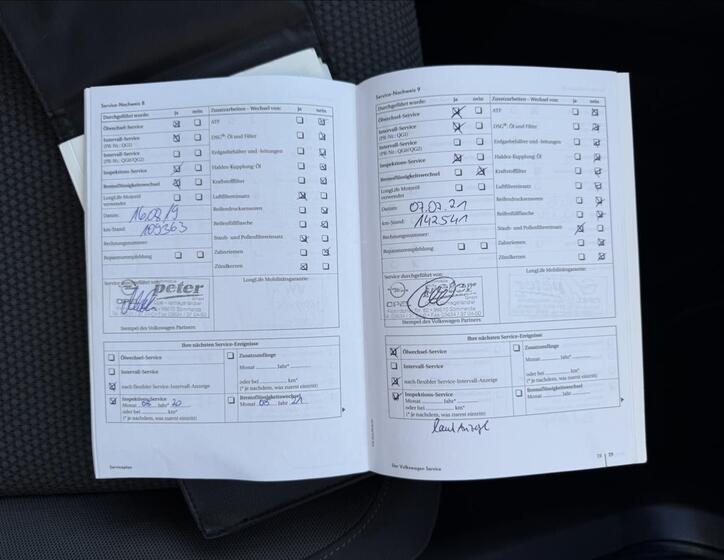 Service-Nachweis 8
Durchgeführt wurde: ja nein Zusatzarbeiten - Wechsel von: ja nein
Ölwechsel-Service ATF
Intervall-Service
(PR-Nr.: QG1) DSG®-Öl und Filter
Intervall-Service
(PR-Nr.: QG0/QG2) Erdgasbehälter und -leitungen
Inspektions-Service Haldex-Kupplung-Öl
Bremsflüssigkeitswechsel Kraftstofffilter
LongLife Motoröl
verwendet Luftfiltereinsatz
Datum: 16.08.19 Reifendrucksensoren
km-Stand: 109363 Reifenfüllflasche
Rechnungsnummer: Staub- und Pollenfiltereinsatz
Reparaturempfehlung Zahnriemen
Zündkerzen
Service durchgeführt von: LongLife Mobilitätsgarantie:
peter
OPEL
Stempel des Volkswagen Partners
Ihre nächsten Service-Ereignisse
Ölwechsel-Service Zusatzumfänge
Monat Jahr*
Intervall-Service oder bei km*
nach flexibler Service-Intervall-Anzeige (* je nachdem, was zuerst eintritt)
Inspektions-Service Bremsflüssigkeitswechsel
Monat 08 20 Monat 08 Jahr 21
oder bei km*
(* je nachdem, was zuerst eintritt)
Serviceplan
Service-Nachweis 9
Durchgeführt wurde: ja nein Zusatzarbeiten - Wechsel von: ja nein
Ölwechsel-Service ATF
Intervall-Service
(PR-Nr.: QG1) DSG®-Öl und Filter
Intervall-Service
(PR-Nr.: QG0/QG2) Erdgasbehälter und -leitungen
Inspektions-Service Haldex-Kupplung-Öl
Bremsflüssigkeitswechsel Kraftstofffilter
LongLife Motoröl
verwendet Luftfiltereinsatz
Datum: 07.07.21 Reifendrucksensoren
km-Stand: 142541 Reifenfüllflasche
Rechnungsnummer: Staub- und Pollenfiltereinsatz
Reparaturempfehlung Zahnriemen
Zündkerzen
Service durchgeführt von: LongLife Mobilitätsgarantie:
OPEL
Stempel des Volkswagen Partners
Ihre nächsten Service-Ereignisse
Ölwechsel-Service Zusatzumfänge
Monat Jahr*
Intervall-Service oder bei km*
nach flexibler Service-Intervall-Anzeige (* je nachdem, was zuerst eintritt)
Inspektions-Service Bremsflüssigkeitswechsel
Monat Jahr* Monat Jahr
oder bei km*
(* je nachdem, was zuerst eintritt)
laut Anzeige
Der Volkswagen Service